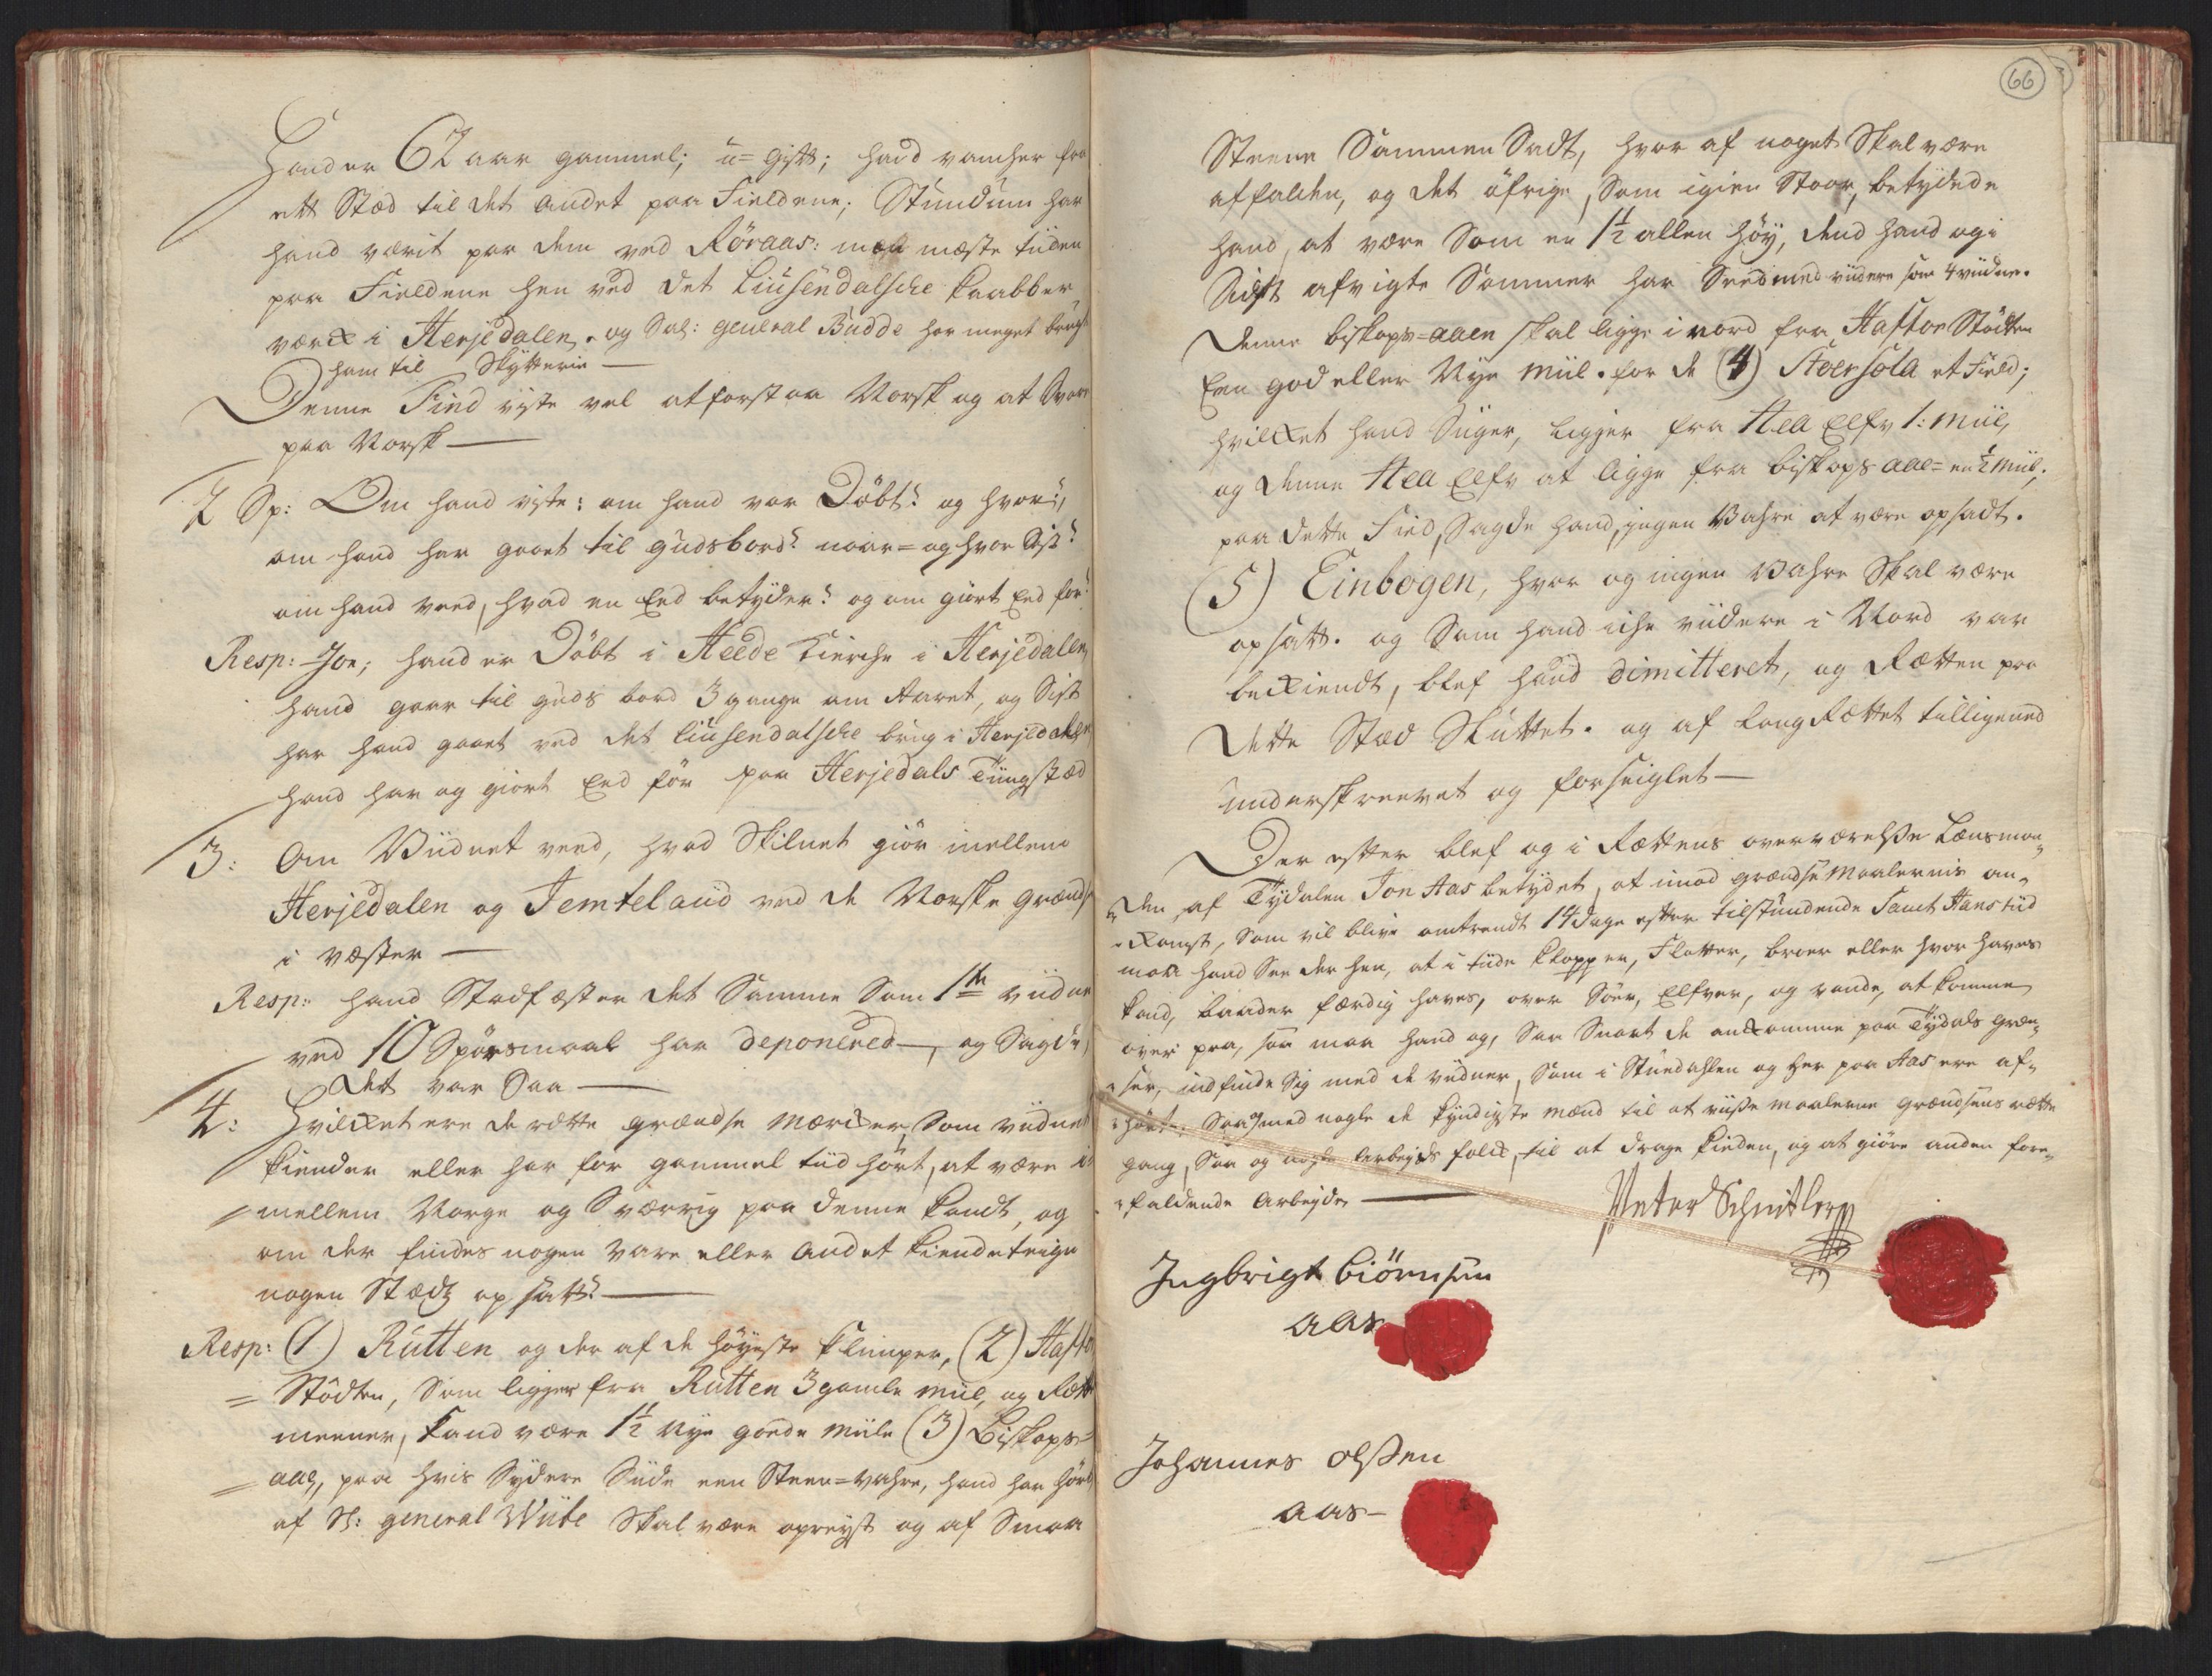 Hand er 62 aar gammel; u=gift; hand vancher fra
ett Stæd til det andet paa Fieldene; Stundum har
hand værit paa dem ved Röraas: men mæste tiiden
paa Fieldene hen ved det Liusendalsche Kaabber
værck i Herjedalen. og Sal: general Budde har meget brugt
ham til Skytterie —
Denne Find viste vel at forstaa Norsk og at Svare
paa Norsk —
2 Sp: Om hand viste: om hand var Döbt? og hvor?,
om hand har gaaet til gudsbord? naar= og hvor Sist?
om hand veed, hvad en Eed betyder? og om giort Eed för?
Resp: Joe; hand er Döbt i Heede Kierche i Herjedalen,
hand gaar til guds bord 3 gange om Aaret, og Sist
har hand gaaet ved det Liusendalsche brug i Herjedalen
hand har og giort Eed för paa Herjedals Tiingstæd
3: Om Viidnet veed, hvad Skilnet giör mellem
Herjedalen og Jemteland ved de Norske grændse
i væster —
Resp: hand Stadfæster det Samme Som 1te viidne
ved 10 Spörsmaal har deponered —, og Sagde,
det var Saa —
4: Hvilcket ere de rætte grændse mærcker, Som viidnet
kiender eller har for gammel tiid hört, at være i=
mellem Norge og Sværrig paa denne kandt, og
om der findes nogen Vare eller andet kiendeteign
nogen Stædz opsatt? —
Resp: (1) Rutten og der af de höyeste klimper, (2) Haftor
= Stödten, Som ligger fra Rutten 3 gamle miil, og Rætten
meener, kand være 1½ nye goede miile (3) Biskops=
= aae, paa hvis Sydere Siide een Steen=Vahre, hand har hört
af Sl: general Wiibe Skal være opreyst og af Smaa
66
Steene Sammen Sadt, hvor af noget Skal være
affalden, og det öfrige, Som igien Staar, betydede
hand, at være Som en 1½ allen höy, dend hand og i
Sidst afvigte Sommer har Seed med viidere som 4 viidne.
Denne biskops=aaen skal ligge i nord fra Haftor Stödten
Een god eller Nye miil. for de (4) Stoersola et Field;
hvilcket hand Siiger, ligger fra Hea Elfv 1: miil,
og denne Hea Elfv at ligge fra biskops aae= en ½ miil;
paa dette Field, Sagde hand, ingen Vahre at være opsadt.
(5) Einbogen, hvor og ingen Vahre Skal være
opsatt. og Som hand iche viidere i Nord var
beckiendt, blef hand dimitteret, og Rætten paa
dette Stæd Sluttet. og af laugRættet tilligemed
underskreevet og forseiglet —
Der efter blef og i Rættens overværelsse Lænsman,
den, af Tydalen Jon Aas betydet, at imod grændse Maalernis an,
komst, Som vil blive omtrendt 14 dage efter tilstundende Sanct Hans tiid
maa hand See der hen, at i tiide klopper, Flotter, broer eller hvor haves
kand, baader færdig haves, over Söer, Elfver, og vande, at komme
over paa, saa maa hand og, Saa Snart de anckomme paa Tydals græn,
ser, indfinde Sig med de viidner, Som i Stuedahlen og her paa Aas ere af,
hört. Saa og med nogle de kyndigste Mænd til at viisse maalerne grændsens rætte
gang, Saa og nogle Arbejds folck, til at drage kieden, og at giöre anden fore,
faldende Arbejde. —
Peter Schnitler
Ingbrigt Biörnsen
aas
Johannes olssen
aas —